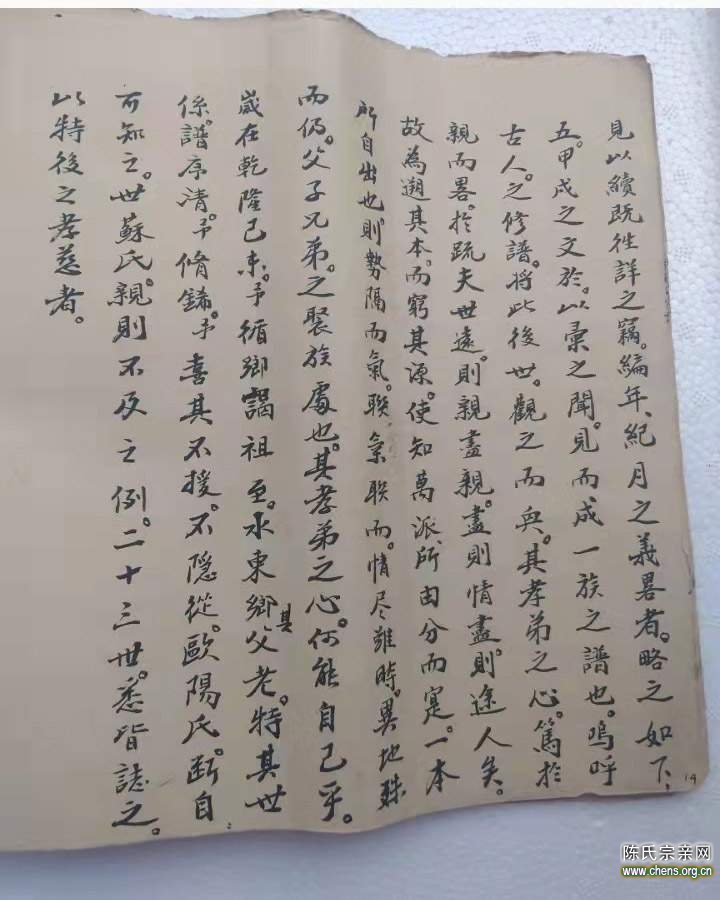 見以續既徃詳之竊。編年、紀月之義畧者。略之如下、
五。甲戍之文於。以彙之聞。見而成一族之譜也。嗚呼
古人。之修譜。將此後世。觀之而與。其孝弟之心。篤於
親而畧。於疏夫世遠。則親盡親。盡則情盡。則途人矣。
故為遡其本。而窮其源。使知萬派、所由分而寔。一本
所自出也。則勢隔而氣。聯氣联而。情尽雖時。異地殊
而仍。父子兄弟。之聚族處也。其孝弟之心。何能自已乎。
嵗在乾隆己未。予循鄉謁祖至。水東鄉其父老。特其世
係。譜序清。予脩錦。予喜其不援。不隱從。歐陽氏。断自
可知之。世蘇氏。親則不及之例。二十三世。悉皆誌之。
以特後之孝慈者。
14
陈氏宗亲网
www.chens.org.cn